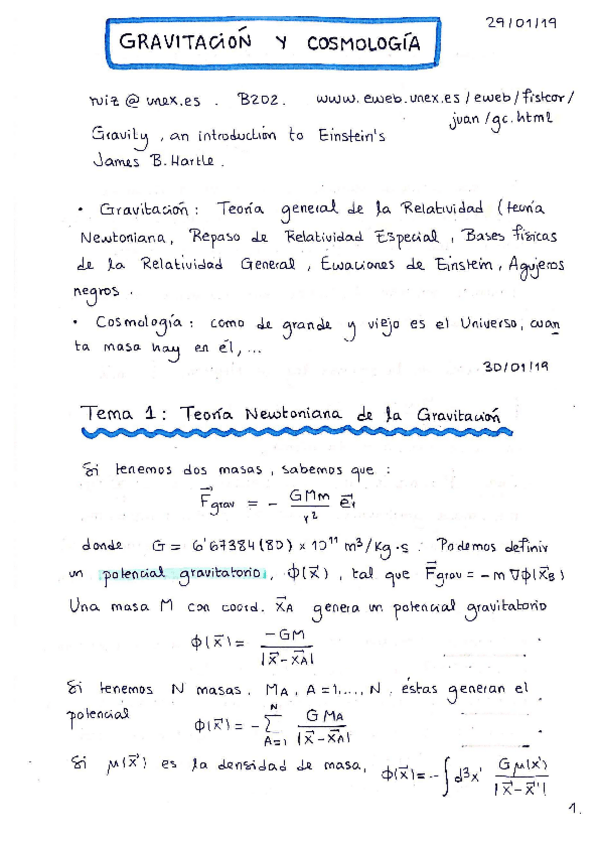 29/01/19
GRAVITACIÓN Y COSMOLOGÍA
ruiz @ unex.es . B202. www.eweb.unex.es/eweb/fistcor/
juan/gc.html
Gravity, an introduction to Einstein's
James B. Hartle.
• Gravitación: Teoría general de la Relatividad (teoría
Newtoniana, Repaso de Relatividad Especial, Bases físicas
de la Relatividad General, Ecuaciones de Einstein, Agujeros
negros.
• Cosmología: como de grande y viejo es el Universo, cuan
ta masa hay en él, ...
30/01/19
Tema 1: Teoría Newtoniana de la Gravitación
Si tenemos dos masas, sabemos que:
F⃗grav = - GMm/r² e⃗r
donde G = 6'67384(80) × 10¹¹ m³/Kg·s. Podemos definir
un potencial gravitatorio, ϕ(x⃗), tal que F⃗grav = -m∇ϕ(x⃗B)
Una masa M con coord. x⃗A genera un potencial gravitatorio
ϕ(x⃗) = -GM/|x⃗-x⃗A|
Si tenemos N masas. MA, A=1,...,N. éstas generan el
potencial ϕ(x⃗) = -∑_{A=1}^{N} GMA/|x⃗-x⃗A|
Si μ(x⃗') es la densidad de masa, ϕ(x⃗) = -∫d³x' Gμ(x')/|x⃗-x⃗'|
1.